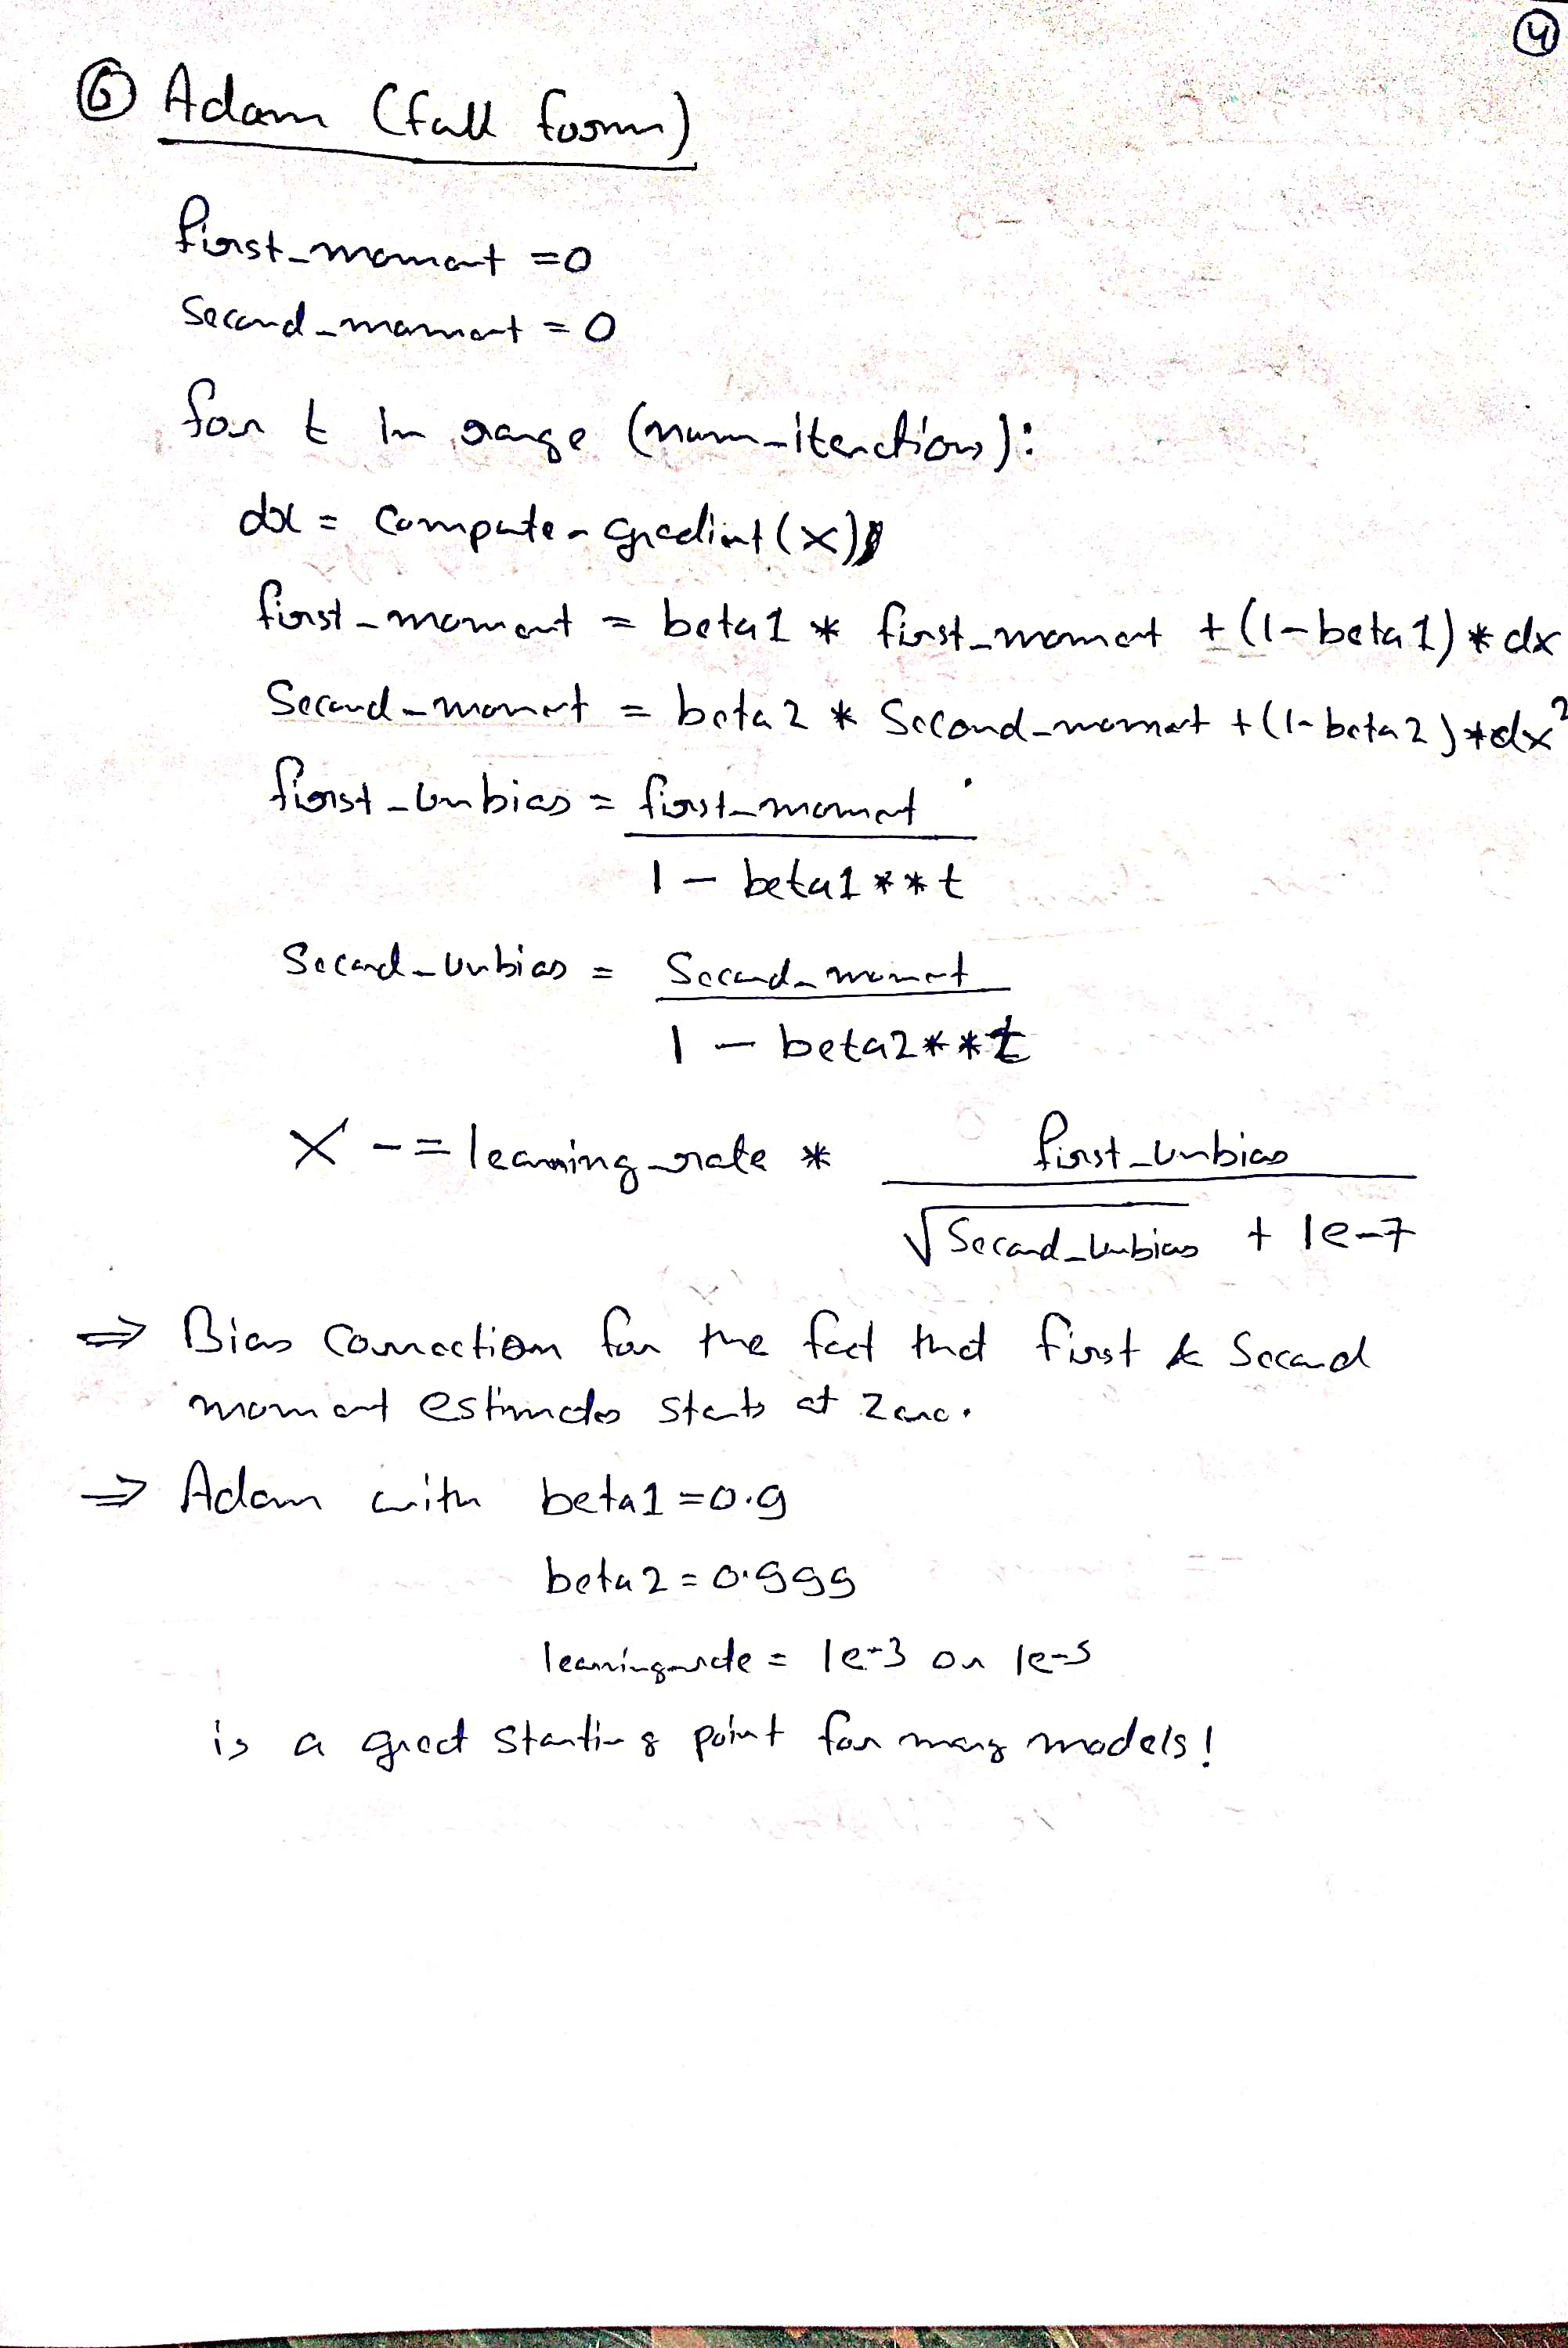 4
6 Adam (full form)
first_moment = 0
Second_moment = 0
for t in range (num_iterations):
dx = Compute_gradient(x)
first_moment = beta1 * first_moment + (1-beta1) * dx
Second_moment = beta2 * Second_moment + (1-beta2) * dx²
first_unbias = first_moment
1 - beta1 ** t
Second_unbias = Second_moment
1 - beta2 ** t
X -= learning_rate * first_unbias
√Second_unbias + 1e-7
⇒ Bias Correction for the fact that first & Second
moment estimates starts at zero.
⇒ Adam with beta1 = 0.9
beta2 = 0.999
learning_rate = 1e-3 or 1e-5
is a great starting point for many models!